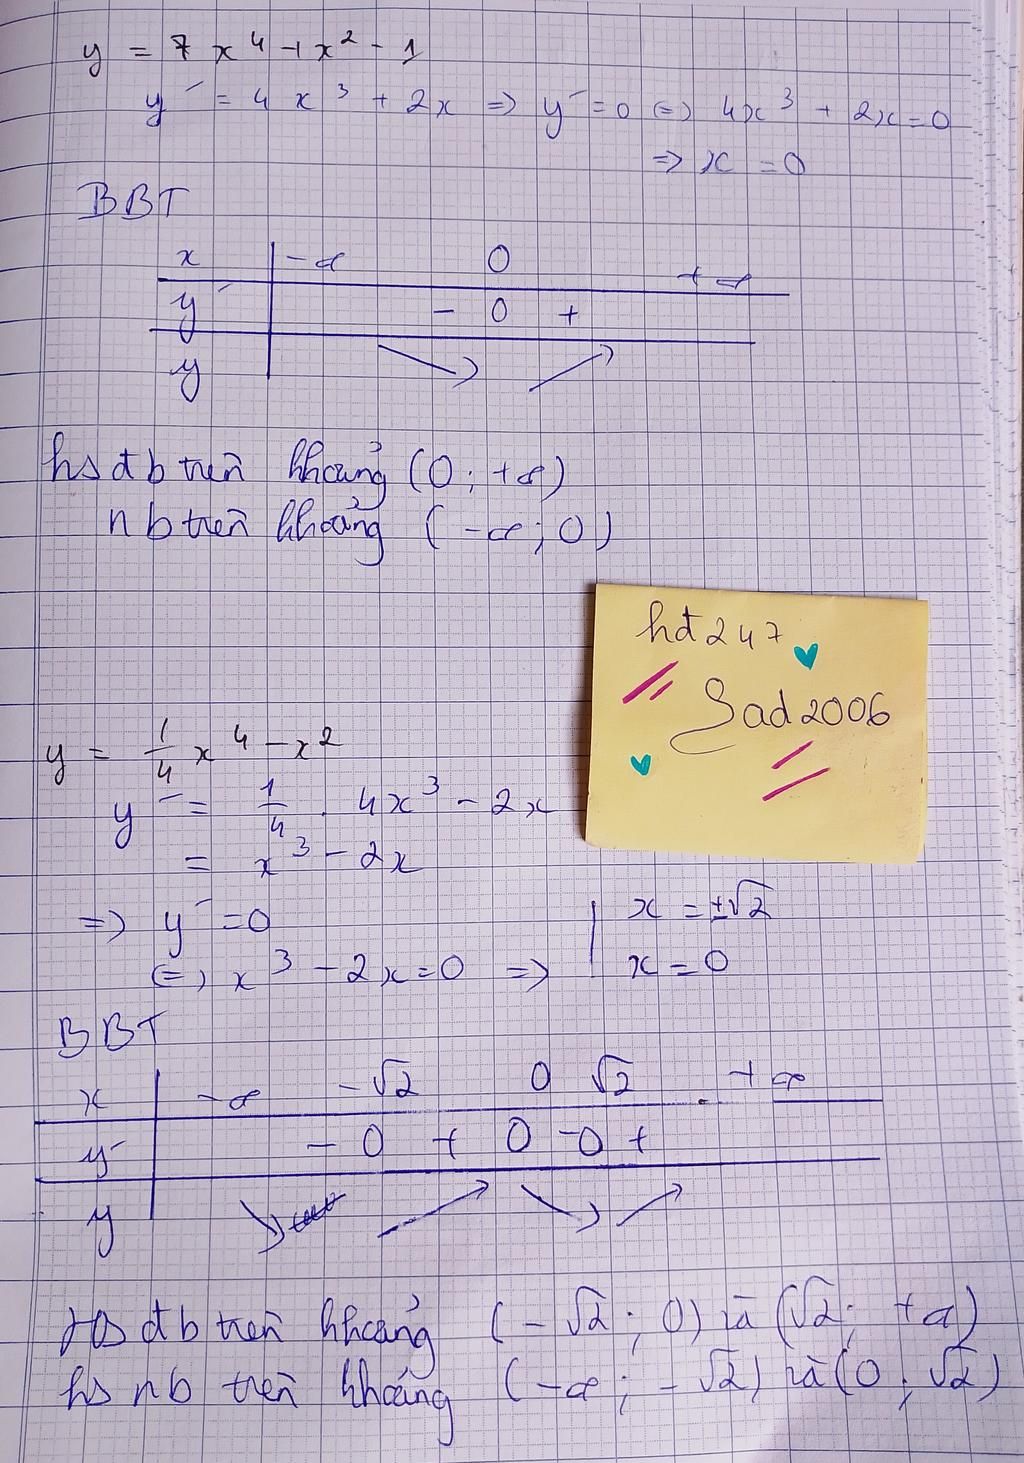 y = 7 x⁴ + x² - 1
y' = 4 x³ + 2x => y' = 0 <=> 4x³ + 2x = 0
=> x = 0
BBT
x -∞ 0 +∞
y' - 0 +
y ↘ ↗
hs đb trên khoảng (0 ; +∞)
nb trên khoảng (-∞ ; 0)
hđ247
Sad2006
y = 1/4 x⁴ - x²
y' = 1/4 . 4x³ - 2x
= x³ - 2x
=> y' = 0
x = ±√2
<=> x³ - 2x = 0 => x = 0
BBT
x -∞ -√2 0 √2 +∞
y' - 0 + 0 - 0 +
y ↘ ↗ ↘ ↗
Hs đb trên khoảng (-√2 ; 0) và (√2 ; +∞)
hs nb trên khoảng (-∞ ; -√2) và (0 ; √2)